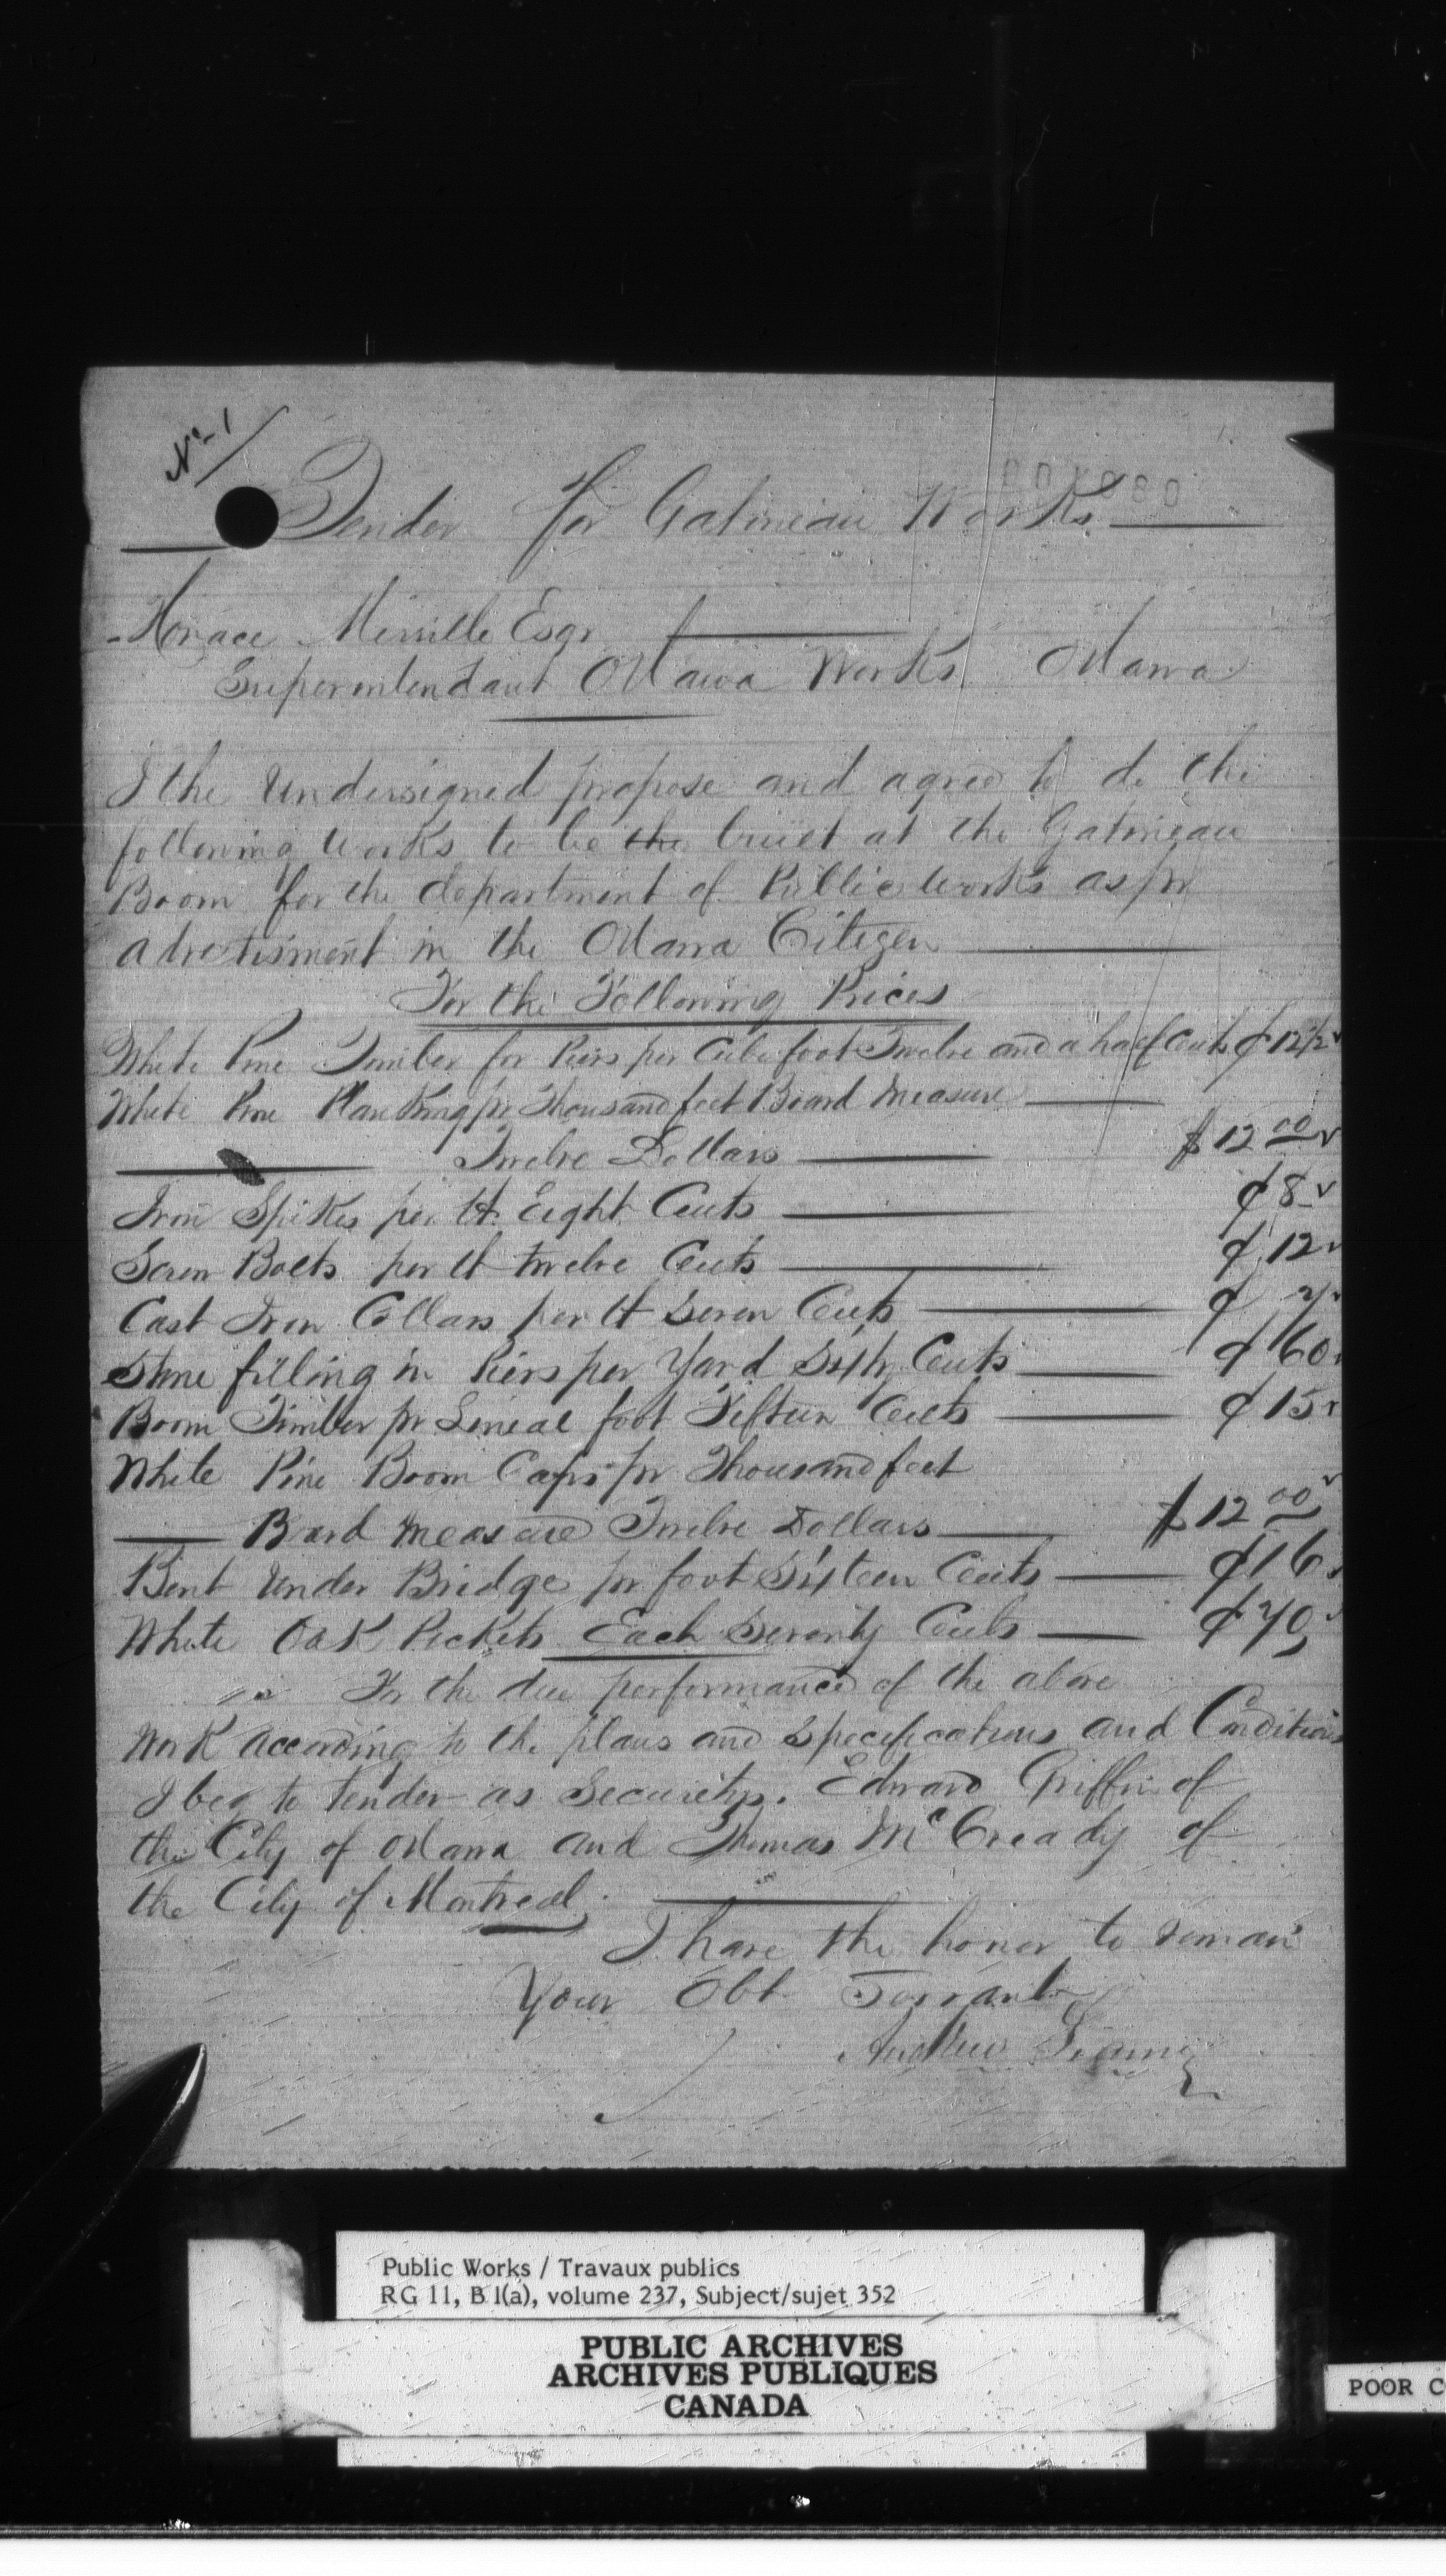 No 1
Tender for Gatineau Works
Horace Merrille Esqr
Superintendant Ottawa Works Ottawa
I the undersigned propose and agree to do the
following works to be the built at the Gatineau
Boom for the department of Public works as pr
advertisment in the Ottawa Citizen
For the Following Prices
White Pine Timber for Piers per Cube foot Twelve and a half Cents ¢ 12 1/2
White Pine Planking pr Thousand feet Board Measure
Twelve Dollars $ 12 00
Iron Spikes per lt Eight Cents ¢ 8
Screw Bolts per lt twelve Cents ¢ 12
Cast Iron Collars per lt Seven Cents ¢ 7
Stone filling in Piers per Yard Sixty Cents ¢ 60
Boom Timber pr Lineal foot Fifteen Cents ¢ 15
White Pine Boom Caps pr Thousand feet
Board measure Twelve Dollars $ 12 00
Bent under Bridge pr foot Sixteen Cents ¢ 16
White Oak Pickets Each Seventy Cents ¢ 70
For the due performance of the above
work according to the plans and specifications and Conditions
I beg to tender as Security. Edward Griffin of
the City of Ottawa and Thomas McCready of
the City of Montreal
I have the honor to remain
Your Obt Servant
Andrew Leamy
Public Works / Travaux publics
RG 11, B 1(a), volume 237, Subject/sujet 352
PUBLIC ARCHIVES
ARCHIVES PUBLIQUES
CANADA
POOR C